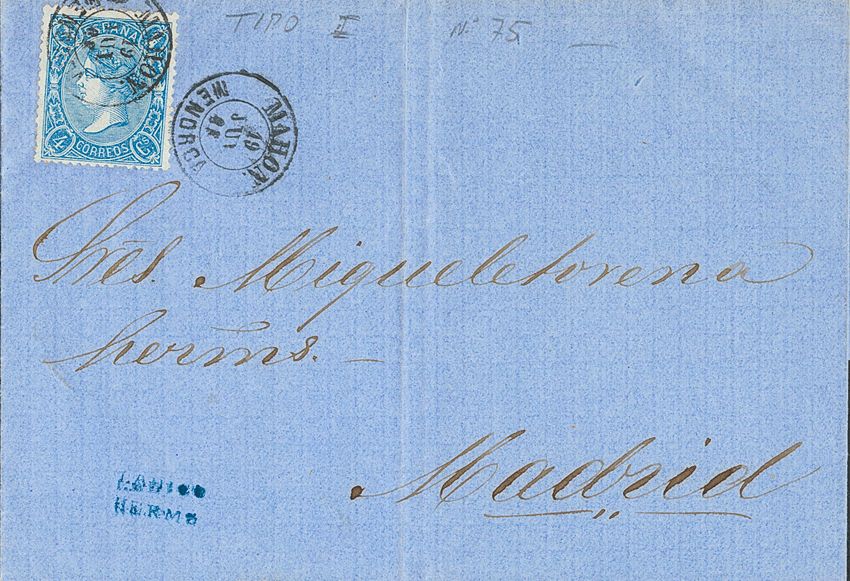 TIPO I Nº 75
ESPAÑA
CORREOS
4 Cs
MAHON.
MAHON.
19
JUL
MENORCA
Sres. Migueletorena
herms.
Madrid
HERMS